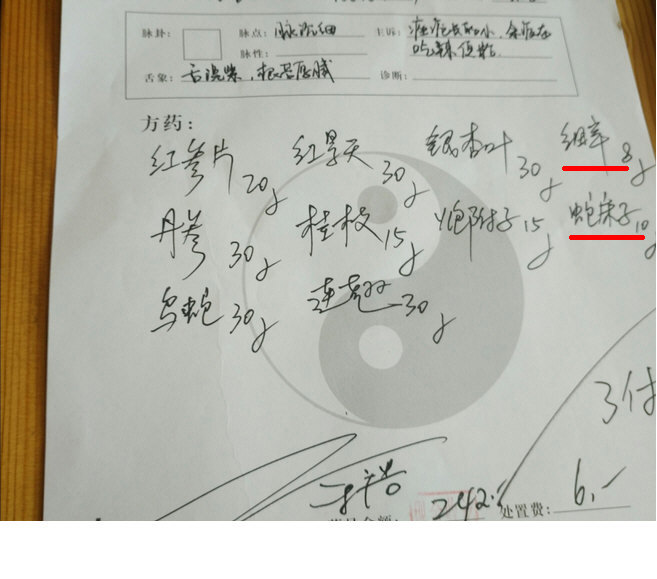 脉卦： 脉点：脉沉细 主诉：
脉性： 吃辣便粘
舌象：舌淡紫，根苔厚腻 诊断：
方药：
红参片20g 红景天30g 银杏叶30g 细辛8g
丹参30g 桂枝15g 炮附子15g 蛇床子10g
乌蛇30g 连翘30g
3付
242. 处置费：6,-